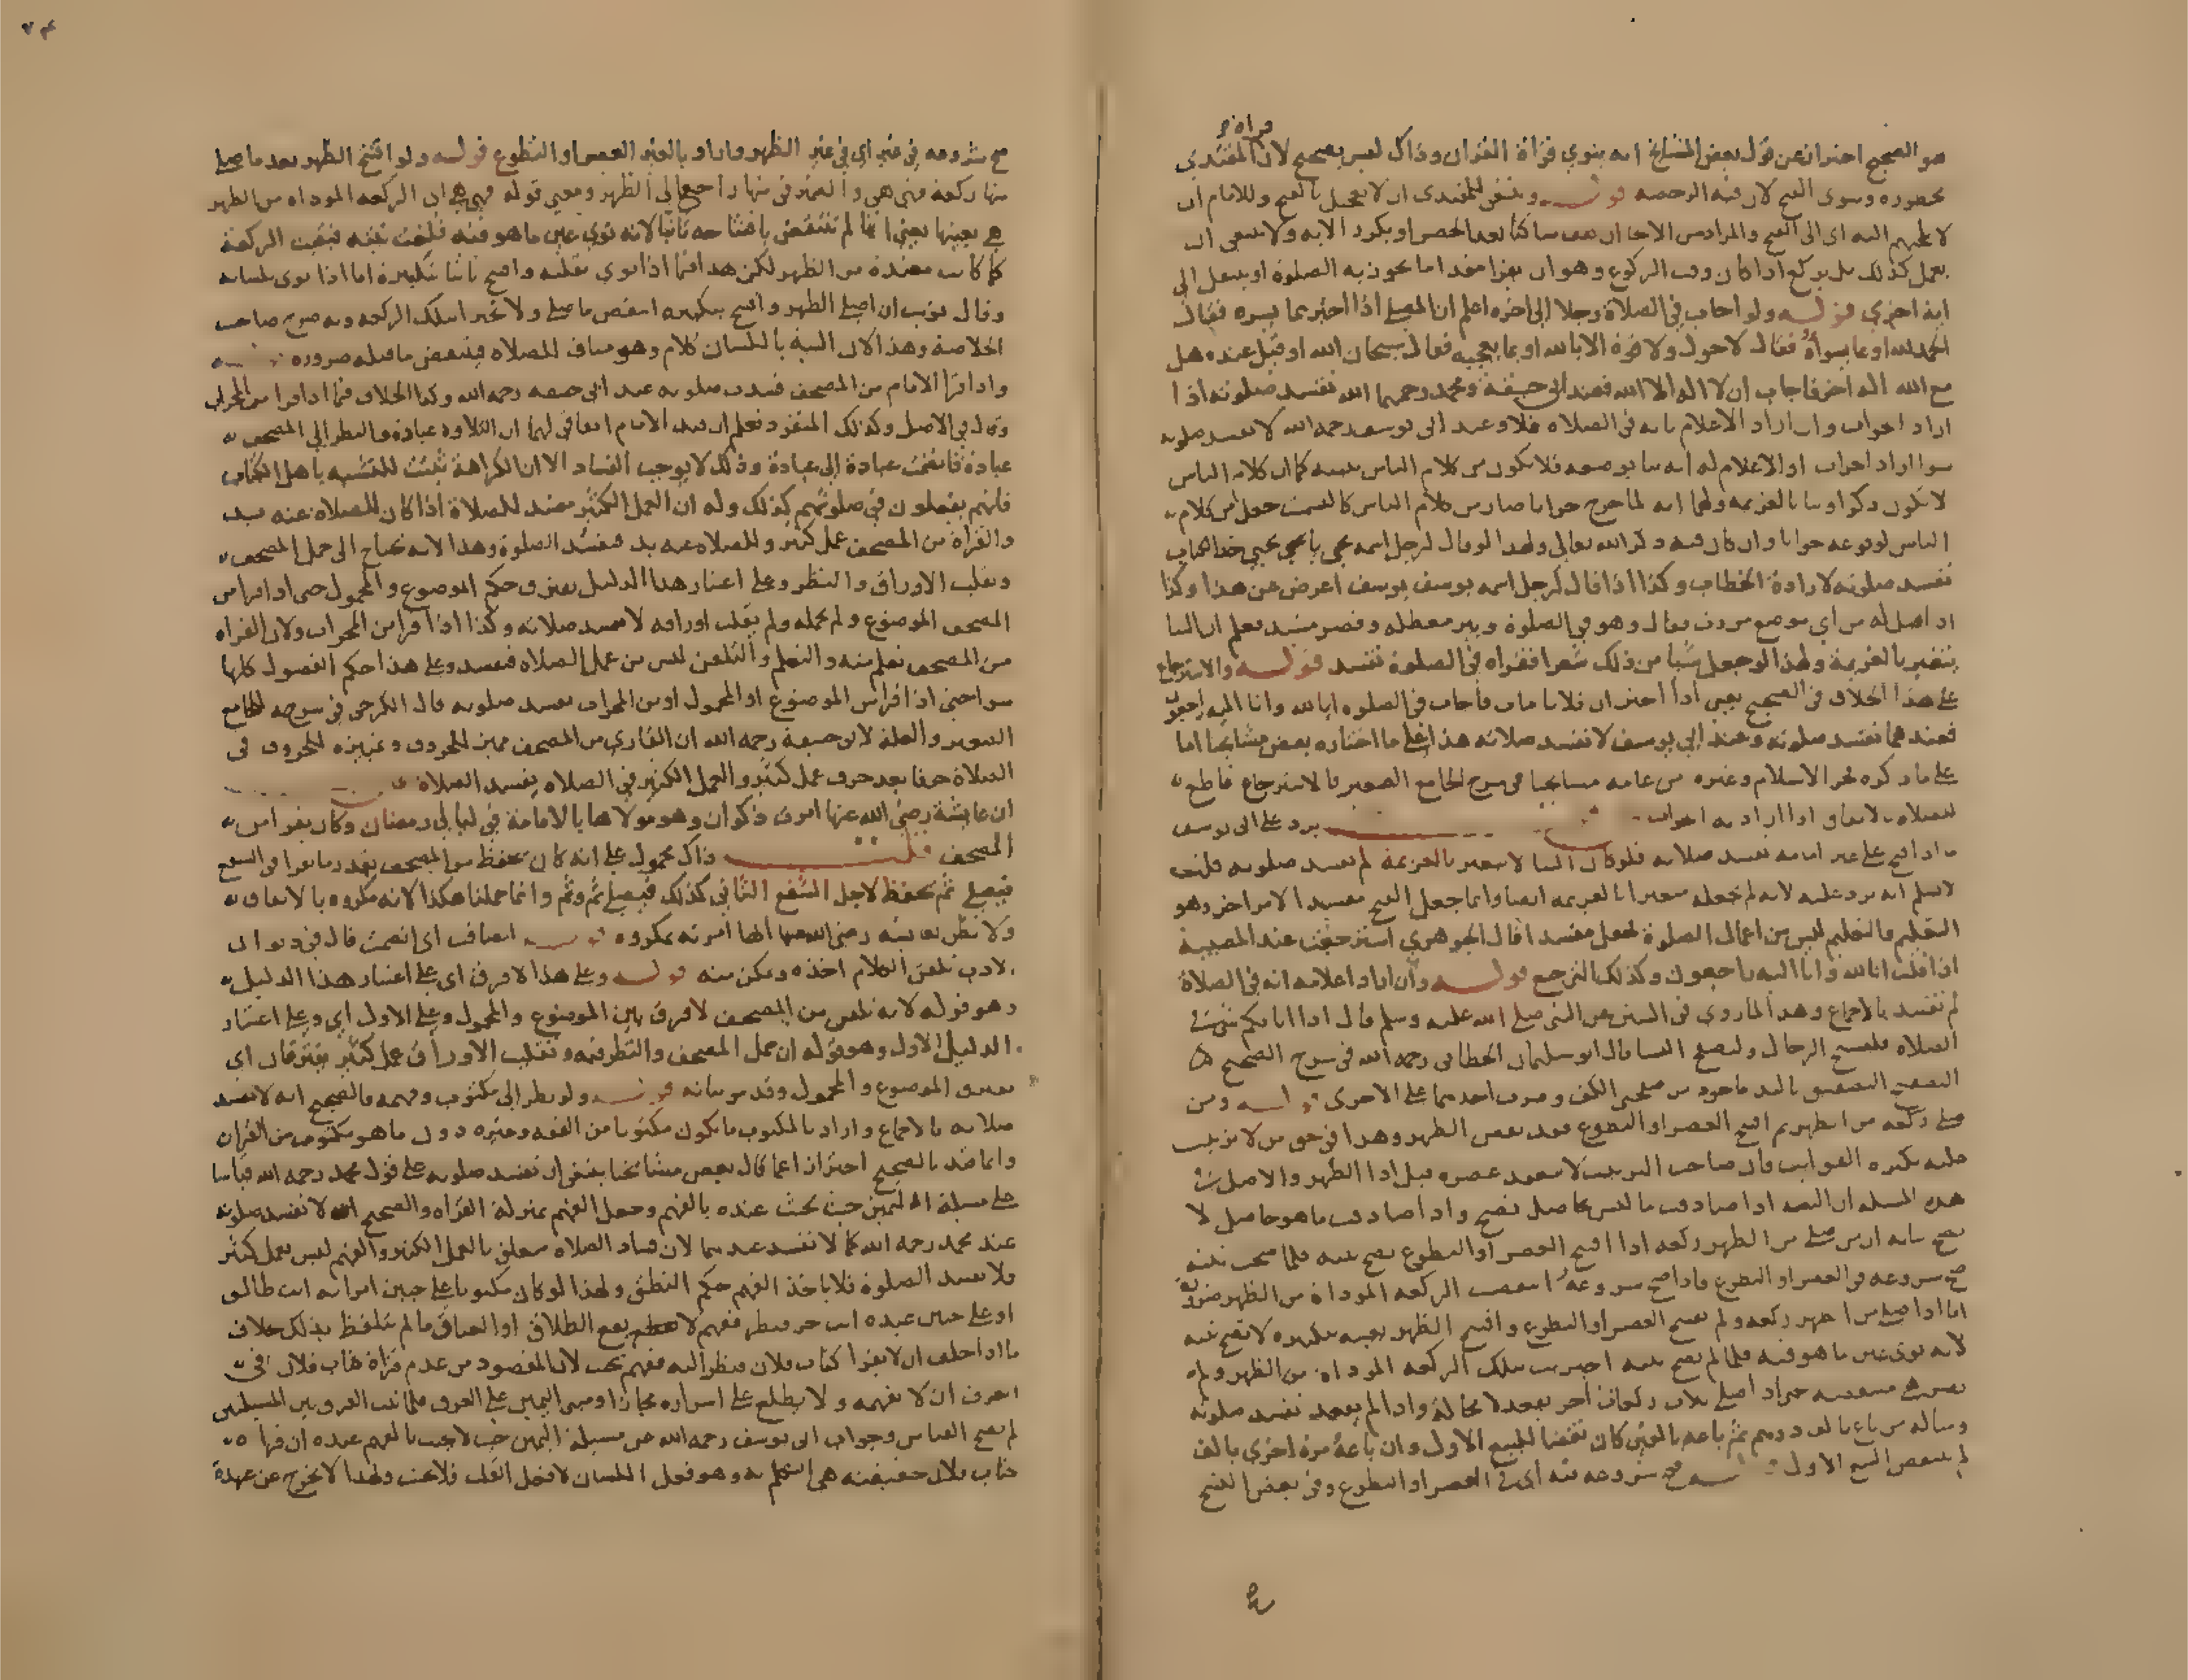 هو الصحيح احتراز عن قول بعض المشايخ انه ينوي قراة القران وذاك ليس بصحيح لان المقتدي
قراة
محظوره وسوى الفتح لان فيه الرخصه قوله وينبغي للمقتدى ان لا يعجل بالفتح وللامام ان
لا يلجيهم اليه اى الى الفتح والمراد من الالجا ان يقف ساكتا بعد الحصر او يكرر الايه ولا ينبغى ان
يعمل كذلك بل يركع اذا كان وقت الركوع وهو ان يقرا مقدار ما يجوز به الصلوة او ينتقل الى
اية اخرى قوله ولو اجاب في الصلاة رجلا الى اخره اعلم ان المصلى اذا اخبر بما يسره فقال
الحمد لله او بما يسوأه فقال لا حول ولا قوة الا بالله او بما يعجبه فقال سبحان الله او قيل عنده هل
مع الله اله اخر فاجاب ان لا اله الا الله فعند ابى حنيفة ومحمد رحمهما الله تفسد صلوته اذا
اراد الجواب وان اراد الاعلام بانه فى الصلاه فلا وعند ابى يوسف رحمه الله لا تفسد صلوته
سوا اراد الجواب او الاعلام له انه ثنا بوضعه فلا يكون من كلام الناس بنيته كما ان كلام الناس
لا يكون ذكرا وثنا بالعزيمه ولهما انه لما خرج جوابا صار من كلام الناس كالتشميت جعل من كلام
الناس لوقوعه جوابا وان كان فيه ذكر الله تعالى ولهذا لو قال لرجل اسمه يحيى يا يحيى خذ الكتاب
تفسد صلوته لارادة الخطاب وكذا اذا قال لرجل اسمه يوسف يوسف اعرض عن هذا وكذا
اذ قيل له من اي موضع مررت فقال وهو في الصلوة وبير معطله وقصر مشيد فعلم ان الثنا
يتغير بالعزيمة ولهذا لو جعل شيا من ذلك شعرا فقراه فى الصلوة تفسد قوله والاسترجاع
على هذا الخلاف فى الصحيح يعنى اذا اخبر ان فلانا مات فاجاب فى الصلوه انا لله وانا اليه راجعون
فعندهما تفسد صلوته وعند ابي يوسف لا تفسد صلاته هذا على ما اختاره بعض مشايخنا اما
على ما ذكره فخر الاسلام وغيره من عامه مشايخنا فى شرح الجامع الصغير فالاسترجاع قاطع
للصلاه بالاتفاق اذا اراد به الجواب يرد على ابى يوسف
ما اذا فتح على غير امامه تفسد صلاته فلو كان الثنا لا يتغير بالعزيمة لم تفسد صلوته قلت
لا نسلم انه يرد عليه لانه لم يجعله متغيرا بالعزيمه ايضا وانما جعل الفتح مفسدا لامر اخر وهو
التعليم والتعليم ليس من اعمال الصلوة فجعل مفسدا قال الجوهري استرجعت عند المصيبة
اذا قلت انا لله وانا اليه راجعون وكذلك الترجيع قوله وان اراد اعلامه انه فى الصلاة
لم تفسد بالاجماع وهذا لما روى فى السنن عن النبى صلى الله عليه وسلم قال اذا نابكم شى فى
الصلاه فليسبح الرجال وليصفح النسا قال ابو سليمان الخطابى رحمه الله فى شرح الصحيح
التصفيح التصفيق باليد ماخوذ من صفحتى الكف وضرب احديهما على الاخرى قوله ومن
صلى ركعه من الظهر ثم افتتح العصر او التطوع فقد نقض الظهر وهذا فى حق من لا ترتيب
عليه بكثره الفوايت فان صاحب الترتيب لا ينعقد عصره قبل ادا الظهر والاصل فى
هذه المسله ان النيه اذا صادفت ما ليس بحاصل تصح واذا صادفت ما هو حاصل لا
تصح بيانه ان من صلى من الظهر ركعه اذا افتتح العصر او التطوع تصح نيته فلما صحت نيته
صح شروعه فى العصر او التطوع فاذا صح شروعه انتقضت الركعه الموداة من الظهر ضرورة
اما اذا صلى من الظهر ركعه ولم يفتتح العصر او التطوع وافتتح الظهر بعينه بتكبيره لا تصح نيته
لانه نوى عين ما هو فيه فلما لم تصح نيته اجتزيت بتلك الركعه الموداة من الظهر ولم
تنتقض حتى اذا صلى ثلاث ركعات اخر يقعد لا محالة واذا لم يقعد تفسد صلوته
ومثاله من باع بالف درهم ثم باعه بالفين كان نقضا للبيع الاول وان باعه مرة اخرى بالف
لم ينتقض البيع الاول قوله صح شروعه فيه اى فى العصر او التطوع وفى بعض النسخ
صح شروعه في غيره اي في غير الظهر واراد بالغير العصر او التطوع قوله ولو افتتح الظهر بعد ما صلى
منها ركعة فهى هى والضمير فى منها راجع الى الظهر ومعنى قوله فهى هى اى الركعه الموداه من الظهر
هى بعينها يعنى انها لم تنتقض بافتتاحه ثانيا لانه نوى عين ما هو فيه فلغت نيته فبقيت الركعة
كما كانت معتدة من الظهر لكن هذا فيما اذا نوى بقلبه وافتتح ثانيا بتكبيره اما اذا نوى بلسانه
وقال نويت ان اصلى الظهر وافتتح بتكبيره انتقض ما صلى ولا تجزى بتلك الركعه وبه صرح صاحب
الخلاصة وهذا لان النية باللسان كلام وهو مناف للصلاه فينتقض ما قبله ضروره قوله
واذا قرا الامام من المصحف فسدت صلوته عند ابى حنيفه رحمه الله وكذا الخلاف فيما اذا قرا من المحراب
وقال فى الاصل وكذلك المنفرد فعلم ان قيد الامام اتفاقى لهما ان التلاوه عبادة والنظر الى المصحف
عبادة فانضمت عبادة الى عبادة وذلك لا يوجب الفساد الا ان الكراهة ثبتت للتشبه باهل الكتاب
فانهم يفعلون في صلوتهم كذلك وله ان العمل الكثير مفسد للصلاة اذا كان للصلاه عنه بد
والقراة من المصحف عمل كثير وللصلاه عنه بد فتفسد الصلوة وهذا لانه يحتاج الى حمل المصحف
وتقليب الاوراق والنظر وعلى اعتبار هذا الدليل يفترق حكم الموضوع والمحمول حتى اذا قرا من
المصحف الموضوع ولم يحمله ولم يقلب اوراقه لا تفسد صلاته وكذا اذا قرا من المحراب ولان القراه
من المصحف تعلم منه والتعلم والتلقن ليس من عمل الصلاه فتفسد وعلى هذا حكم الفصول كلها
سوا حتى اذا قرا من الموضوع او المحمول او من المحراب تفسد صلوته قال الكرخى في شرحه للجامع
الصغير والعلة لابى حنيفة رحمه الله ان القارى من المصحف مميز للحروف وتمييزه للحروف فى
الصلاة حرفا بعد حرف عمل كثير والعمل الكثير فى الصلاه يفسد الصلاة
ان عايشة رضى الله عنها امرت ذكوان وهو مولاها بالامامة في ليالي رمضان وكان يقرا من
المصحف قلت ذاك محمول على انه كان يحفظ من المصحف بقدر ما يقرا فى الشفع
فيصلى ثم يحفظ لاجل الشفع الثانى كذلك فيصلى ثم وثم وانما حملنا هكذا لانه مكروه بالاتفاق
ولا نظن بعايشه رضى الله عنها انها امرته بمكروه قوله
الادب تلقن الكلام اخذه وتمكن منه قوله وعلى هذا لا فرق اى على اعتبار هذا الدليل
وهو قوله لانه تلقن من المصحف لا فرق بين الموضوع والمحمول وعلى الاول اي وعلى اعتبار
الدليل الاول وهو قوله ان حمل المصحف والنظر فيه وتقليب الاوراق عمل كثير يفترقان اى
يفترق الموضوع والمحمول وقد مر بيانه قوله ولو نظر الى مكتوب وفهمه فالصحيح انه لا تفسد
صلاته بالاجماع واراد بالمكتوب ما يكون مكتوبا من الفقه وغيره دون ما هو مكتوب من القران
وانما قيد بالصحيح احترازا عما قال بعض مشايخنا ينبغى ان تفسد صلوته على قول محمد رحمه الله قياسا
على مسيلة اليمين حيث يحنث عنده بالفهم وجعل الفهم بمنزلة القراه والصحيح انه لا تفسد صلوته
عند محمد رحمه الله كما لا تفسد عندهما لان فساد الصلاه معلق بالعمل الكثير والفهم ليس بعمل كثير
فلا تفسد الصلوة فلا ياخذ الفهم حكم النطق ولهذا لو كان مكتوبا على جبين امراته انت طالق
او على جبين عبده انت حر فنظر ففهم لا يقع الطلاق او العتاق ما لم يتلفظ بذلك بخلاف
ما اذا حلف ان لا يقرا كتاب فلان فنظر اليه ففهم يحنث لان المقصود من عدم قراة كتاب فلان فى
العرف ان لا يفهمه ولا يطلع على اسراره مجازا ومبنى اليمين على العرف فلما ثبت الفرق بين المسيلتين
لم يصح القياس وجواب ابى يوسف رحمه الله عن مسيلة اليمين حيث لا يحنث بالفهم عنده ان قراه
كتاب فلان حقيقته هى التكلم به وهو فعل اللسان لا فعل القلب فلا يحنث ولهذا لا يخرج عن عهدة